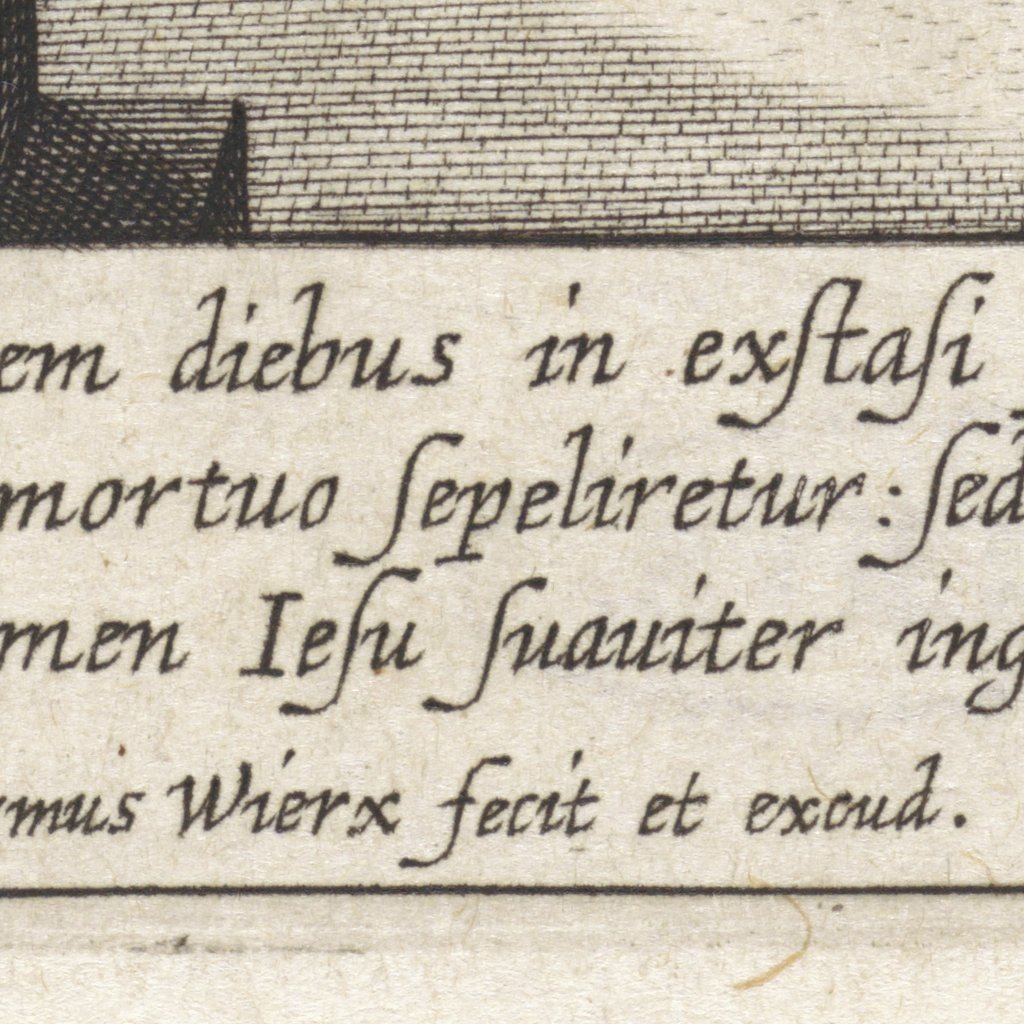 em diebus in exſtaſi
mortuo ſepeliretur: ſed
men Ieſu ſuauiter ing
mus Wierx fecit et excud.